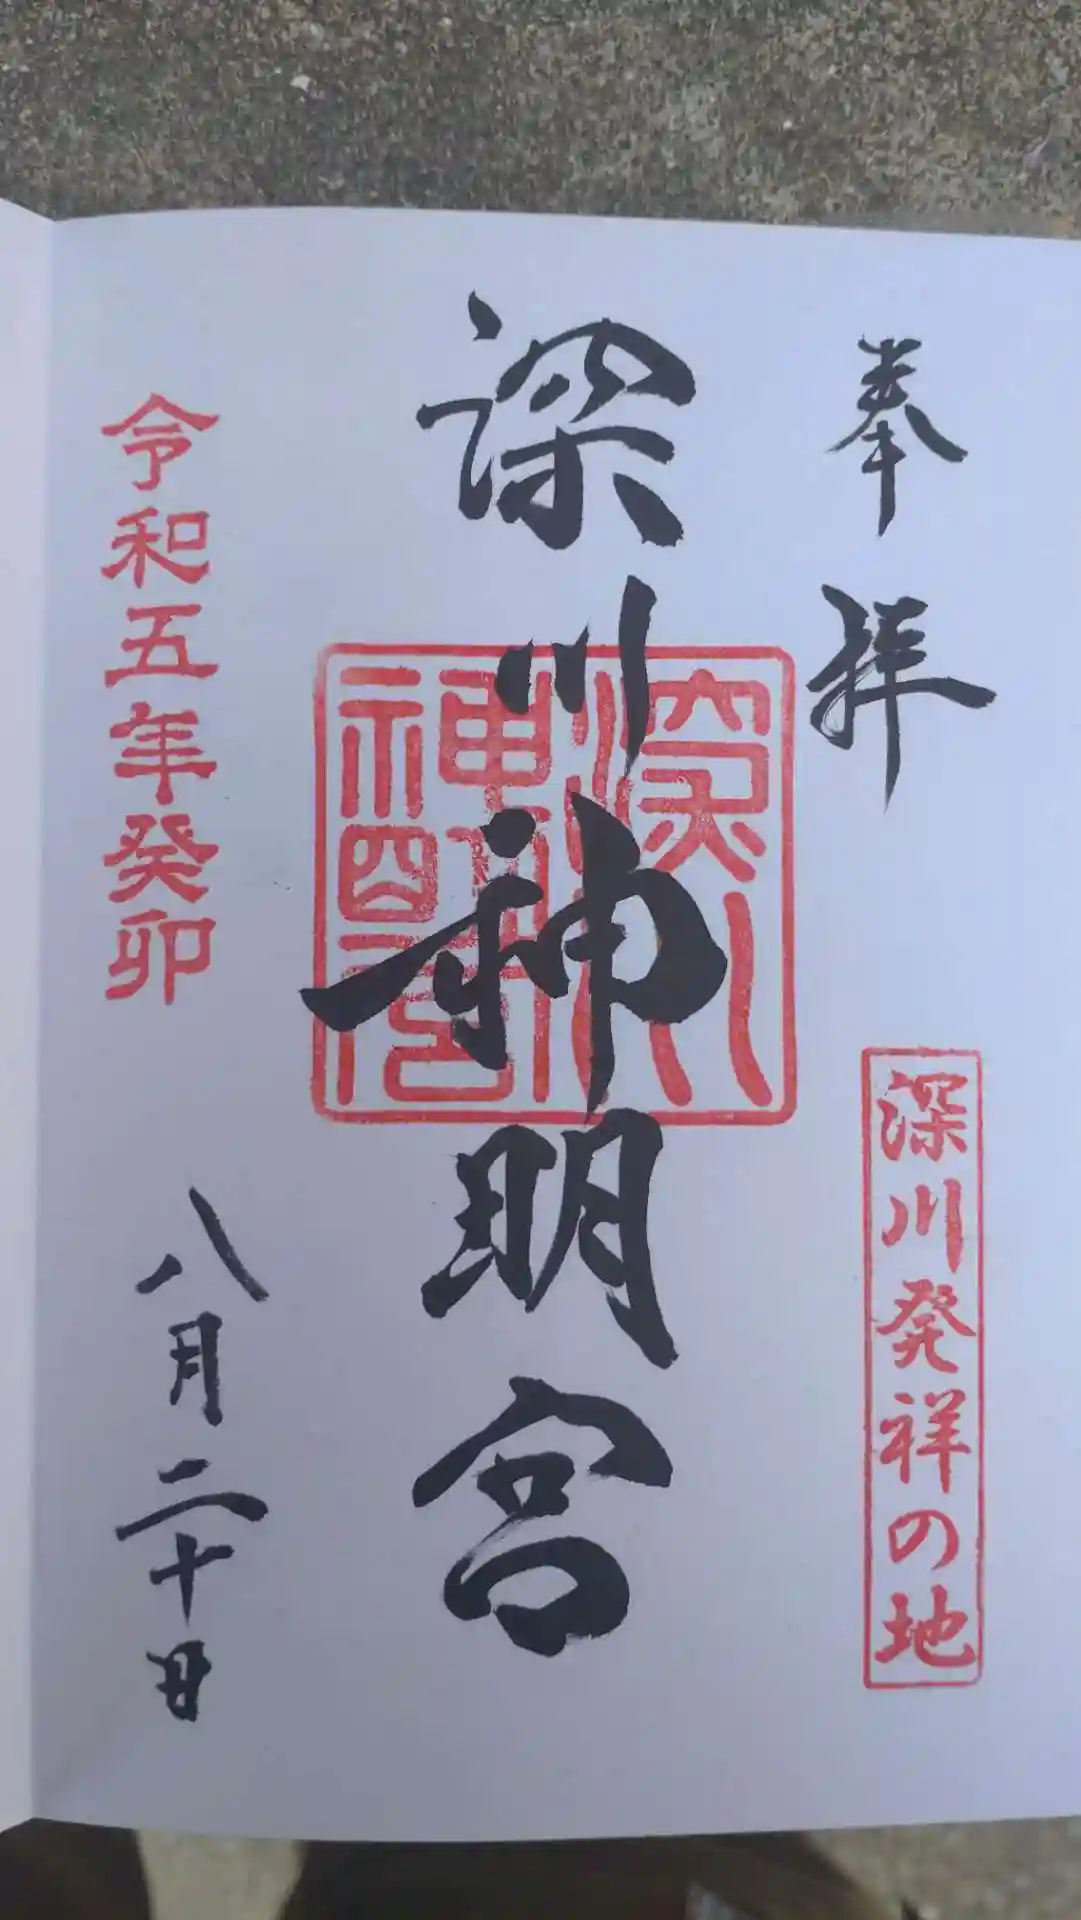 奉拝
深川発祥の地
深川神明宮
深川
神明宮
令和五年癸卯
八月二十日